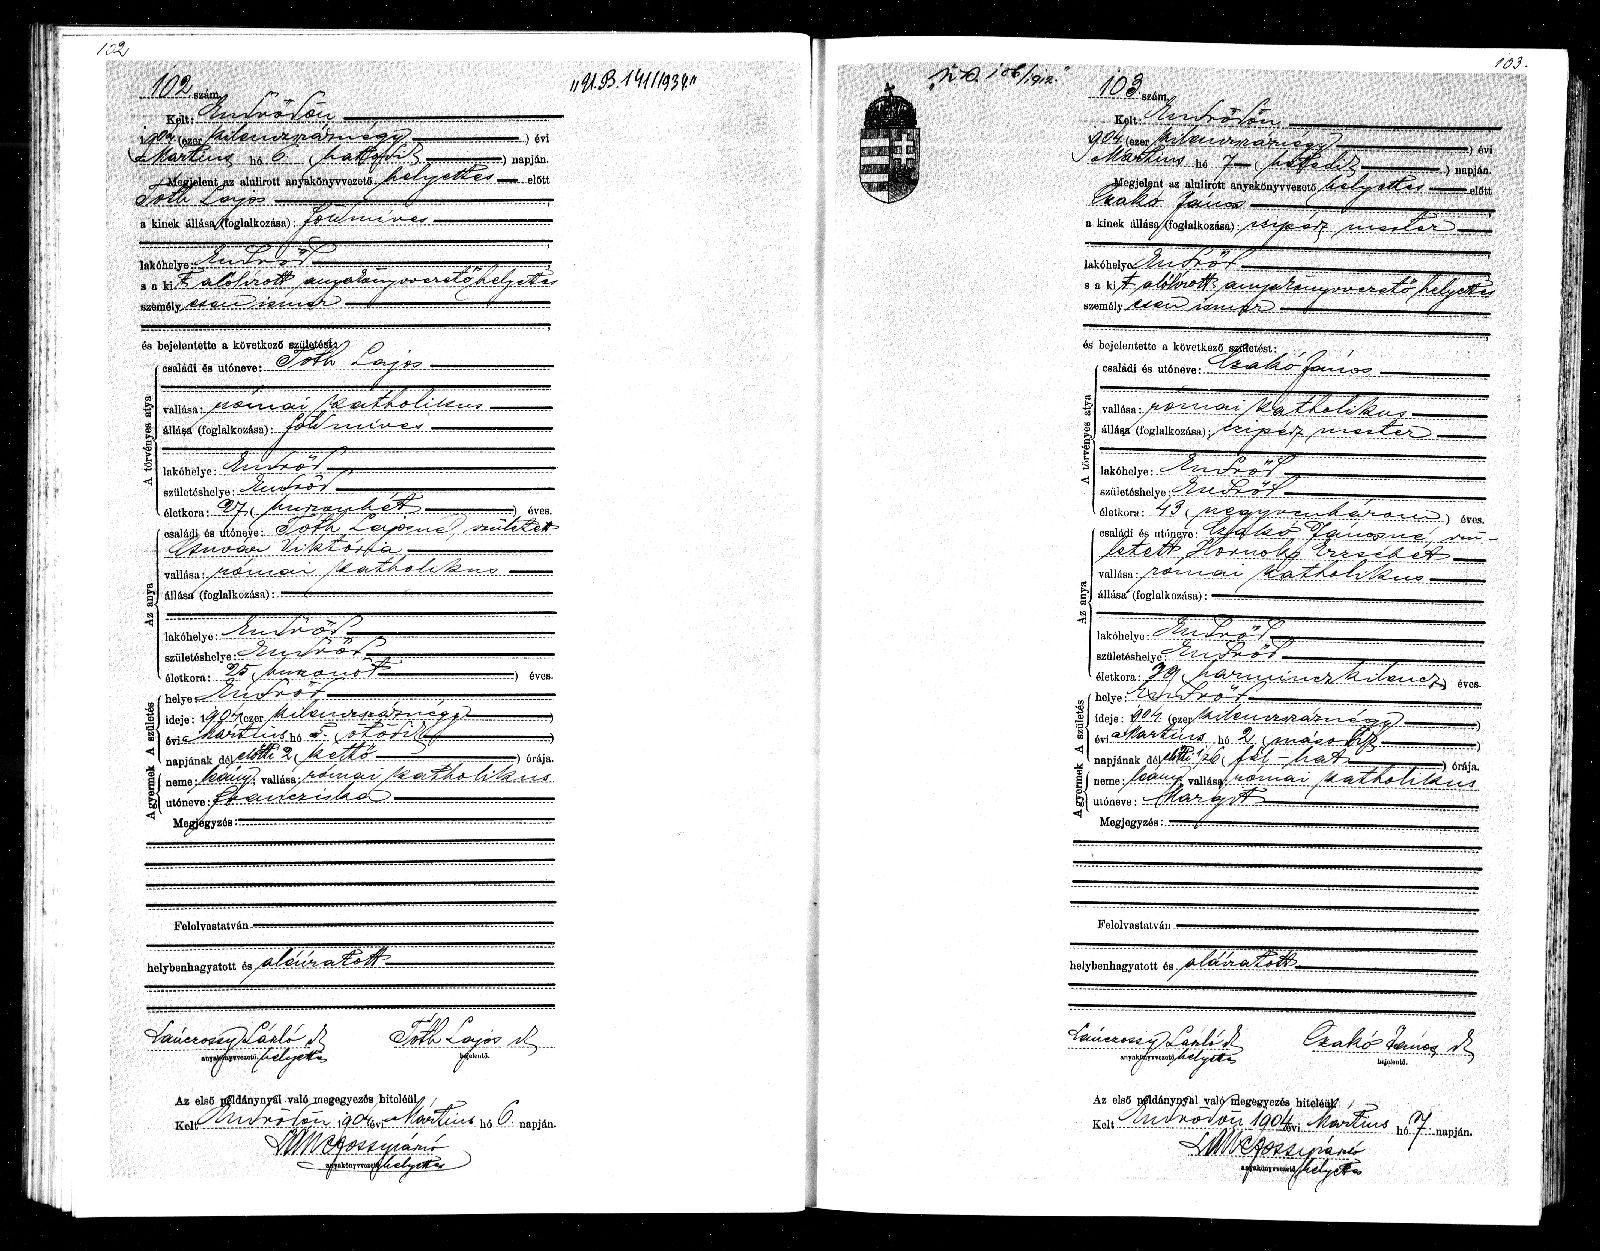 102
102 szám.
"U.B. 141/1934"
Kelt: Endrődön
1904 (ezer kilenczszáznégy) évi
Mártius hó 6 (hatodik) napján.
Megjelent az alulirott anyakönyvvezető helyettes előtt
Tóth Lajos
a kinek állása (foglalkozása): földmives
lakóhelye: Endrőd
s a kit alólirott anyakönyvvezető helyettes
személyesen ismer
és bejelentette a következő születést:
A törvényes atya
családi és utóneve: Tóth Lajos
vallása: római katholikus
állása (foglalkozása): földmives
lakóhelye: Endrőd
születéshelye: Endrőd
életkora: 27 (huszonhét) éves.
Az anya
családi és utóneve: Tóth Lajosné, született
Viktória
vallása: római katholikus
állása (foglalkozása):
lakóhelye: Endrőd
születéshelye: Endrőd
életkora: 25 (huszonöt) éves.
A születés
helye: Endrőd
ideje: 1904 (ezer kilenczszáznégy)
évi Mártius hó 5. (ötödik)
napjának dél előtti 2 (kettő) órája.
A gyermek
neme: leány, vallása: római katholikus
utóneve: Francziska
Megjegyzés:
Felolvastatván
helybenhagyatott és aláiratott
László
Tóth Lajos
anyakönyvvezető helyettes
bejelentő.
Az első példánynyal való megegyezés hiteléül
Kelt Endrődön 1904 évi Mártius hó 6. napján.
anyakönyvvezető helyettes
103.
103 szám.
Kelt: Endrődön
1904 (ezer kilenczszáznégy) évi
Mártius hó 7 (hetedik) napján.
Megjelent az alulirott anyakönyvvezető helyettes előtt
Czakó János
a kinek állása (foglalkozása): czipész mester
lakóhelye: Endrőd
s a kit alólirott anyakönyvvezető helyettes
személyesen ismer
és bejelentette a következő születést:
A törvényes atya
családi és utóneve: Czakó János
vallása: római katholikus
állása (foglalkozása): czipész mester
lakóhelye: Endrőd
születéshelye: Endrőd
életkora: 43 (negyvenhárom) éves.
Az anya
családi és utóneve: Czakó Jánosné, szü-
letett Hornok Erzsébet
vallása: római katholikus
állása (foglalkozása):
lakóhelye: Endrőd
születéshelye: Endrőd
életkora: 39 (harminczkilencz) éves.
A születés
helye: Endrőd
ideje: 1904 (ezer kilenczszáznégy)
évi Mártius hó 2 (második)
napjának dél előtti ½6 (fél-hat) órája.
A gyermek
neme: leány, vallása: római katholikus
utóneve: Margit
Megjegyzés:
Felolvastatván
helybenhagyatott és aláiratott
László
Czakó János
anyakönyvvezető helyettes
bejelentő.
Az első példánynyal való megegyezés hiteléül.
Kelt Endrődön 1904 évi Mártius hó 7. napján.
anyakönyvvezető helyettes